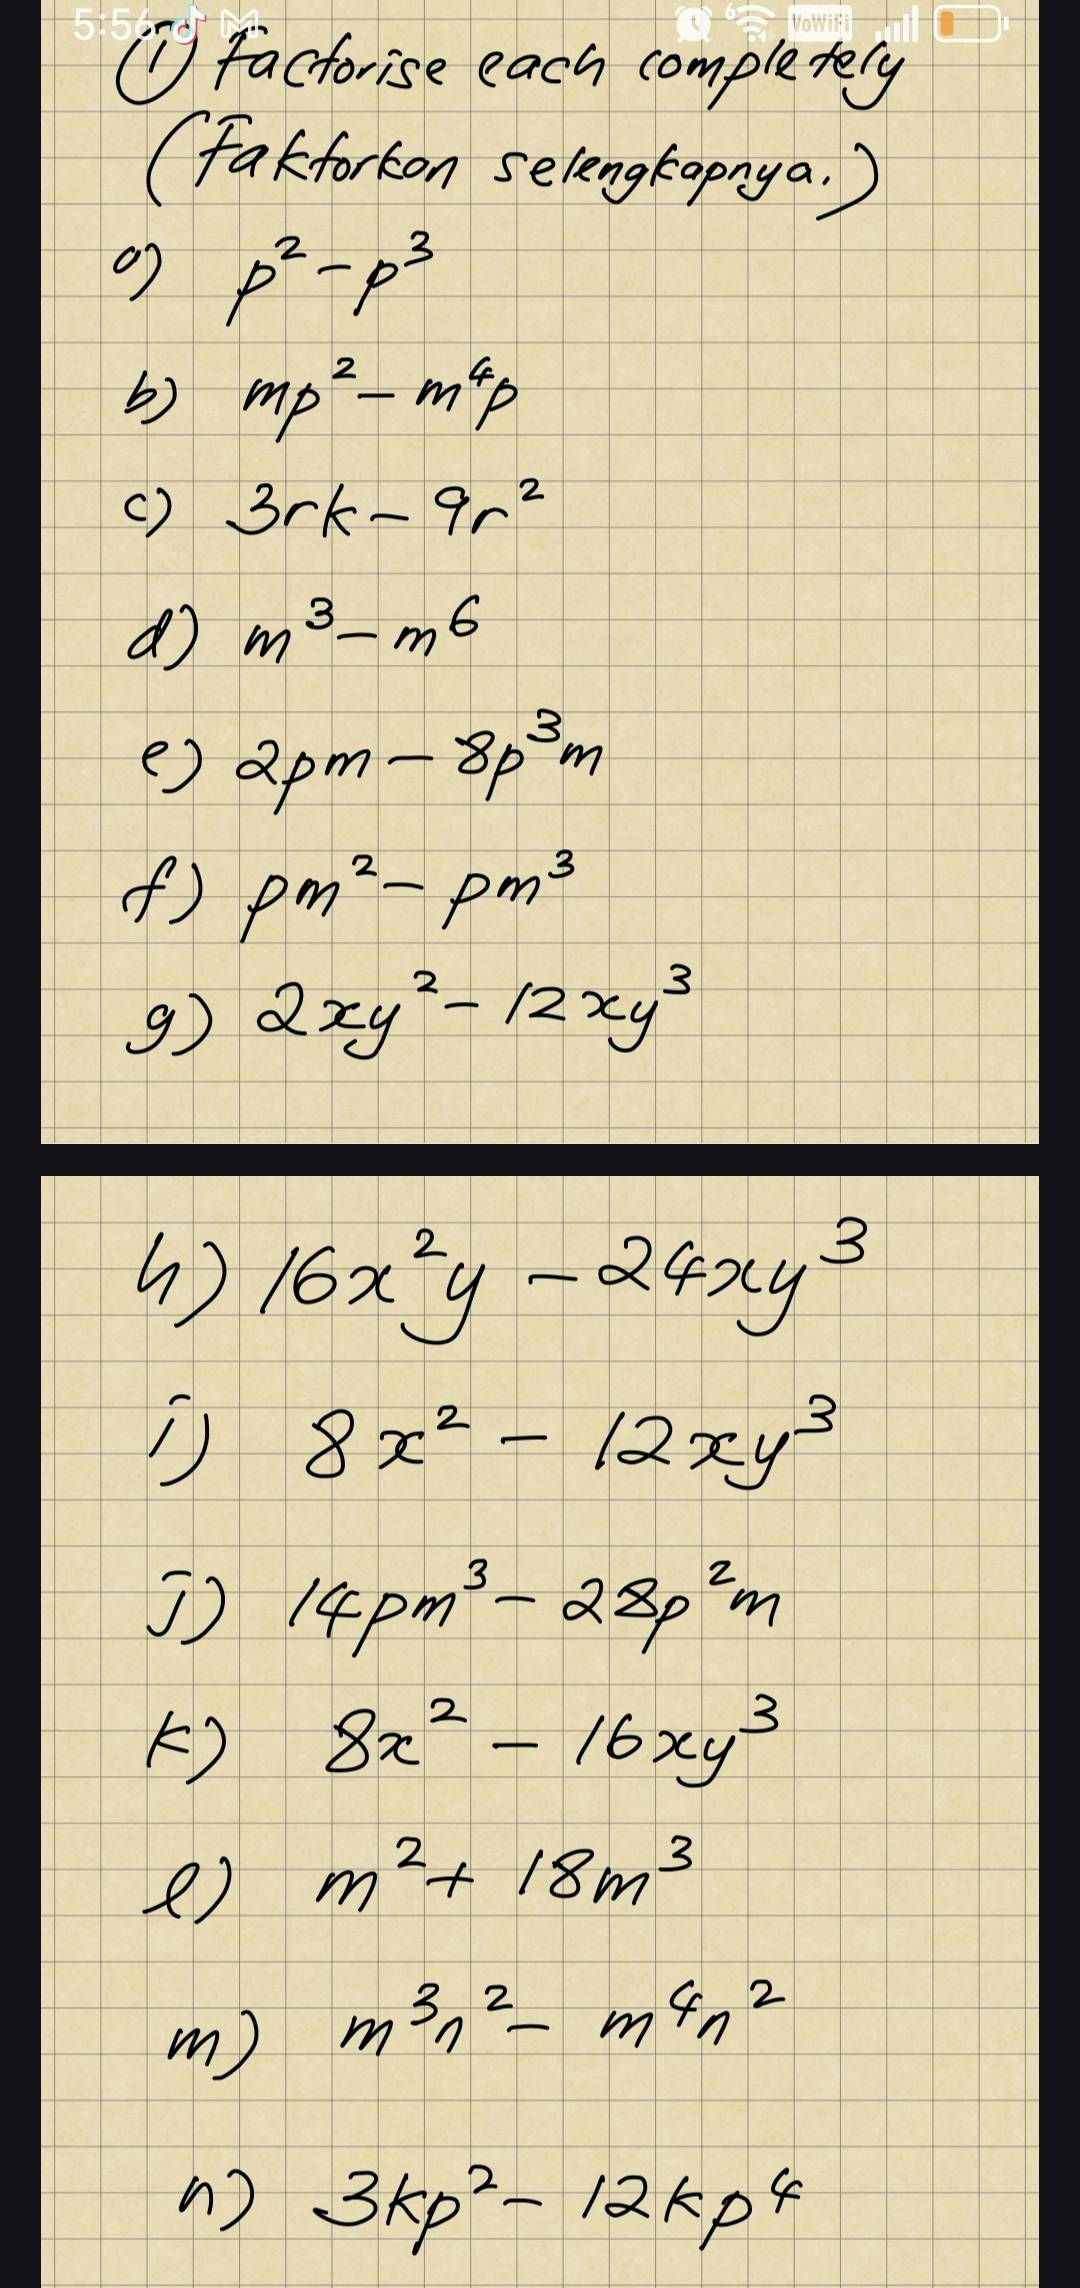 5:56
6
VoWiFi
① Factorise each completely
(Faktorkan selengkapnya.)
a) p² - p³
b) mp² - m⁴p
c) 3rk - 9r²
d) m³ - m⁶
e) 2pm - 8p³m
f) pm² - pm³
g) 2xy² - 12xy³
h) 16x²y - 24xy³
i) 8x² - 12xy³
j) 14pm³ - 28p²m
k) 8x² - 16xy³
l) m² + 18m³
m) m³n² - m⁴n²
n) 3kp² - 12kp⁴